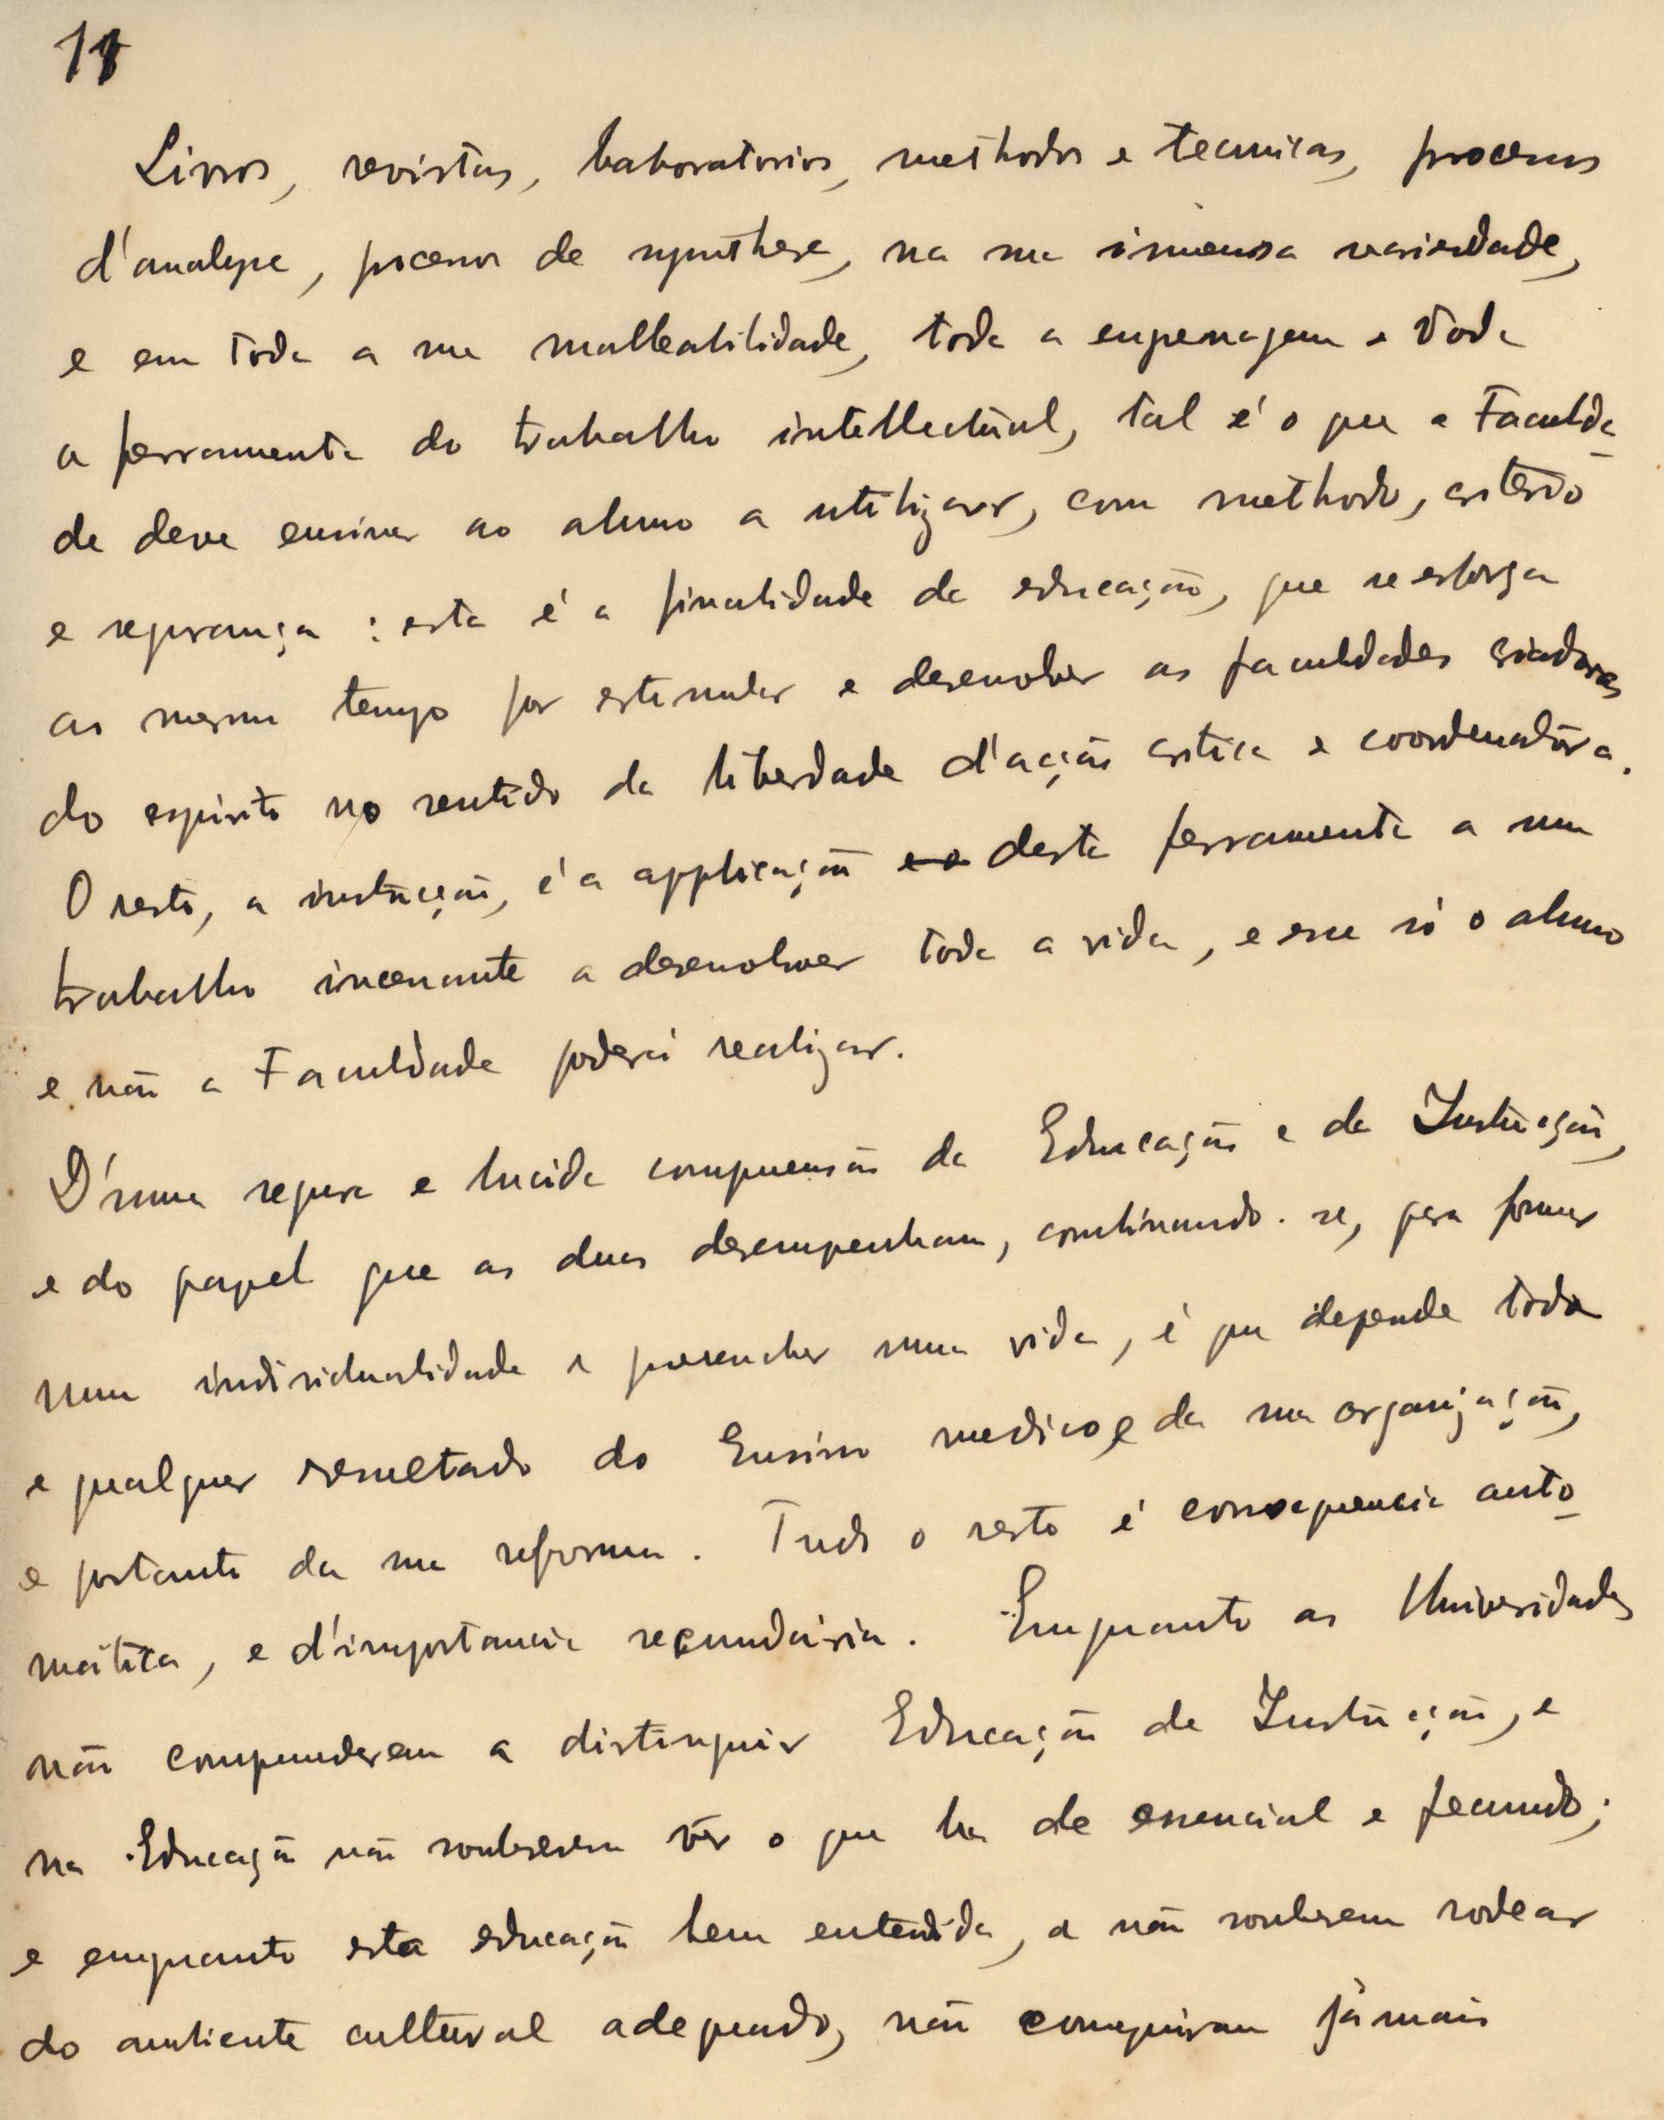 11
Livros, revistas, laboratorios, methodos e tecnicas, processos
d'analyse, processos de synthese, na sua immensa variedade,
e em toda a sua malleabilidade, toda a engrenagem e toda
a ferramenta do trabalho intellectual, tal é o que a Faculda-
de deve ensinar ao aluno a utilizar, com methodo, criterio
e segurança: esta é a finalidade da educação, que se esforça
ao mesmo tempo por estimular e desenvolver as faculdades criadoras
do espirito no sentido da liberdade d'acção critica e coordenadora.
O resto, a instrucção, é a applicação desta ferramenta a um
trabalho incessante a desenvolver toda a vida, e esse só o aluno
e não a Faculdade poderá realizar.
D'uma segura e lucida compreensão da Educação e da Instrucção,
e do papel que as duas desempenham, combinando-se, para formar
uma individualidade e preencher uma vida, é que depende todo
e qualquer resultado do Ensino medico e da sua organização,
e portanto da sua reforma. Tudo o resto é consequencia auto-
mática, e d'importancia secundária. Emquanto as Universidades
não compreenderem a distinguir Educação de Instrucção, e
na Educação não souberem vêr o que ha de essencial e fecundo;
e emquanto esta educação bem entendida, a não souberem rodear
do ambiente cultural adequado, não conseguiram jámais